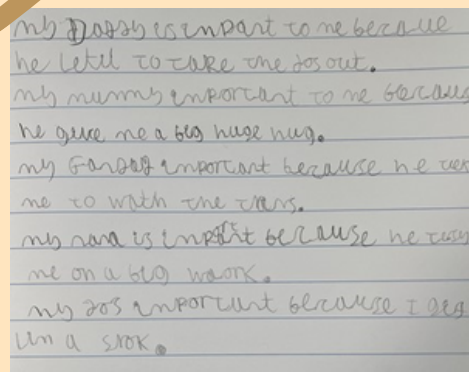 my Daddy is inpant to me becaue
he letil to take the dos out.
my mummy inportant to me becaus
he give me a big huge hug.
my Gandad inportant because he
me to wath the trans.
my nana is inpotit because he
me on a big waork.
my dos inportant because I
un a stok.